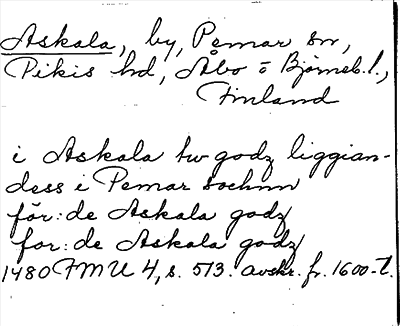 Askala, by, Pemar sn,
Pikis hd, Åbo o Björneb. l.,
Finland
i Askala tw godz liggian-
dess i Pemar sochnn
för: de Askala godz
for: de Askala godz
1480 FMU 4, s. 513. avskr. fr. 1600-t.